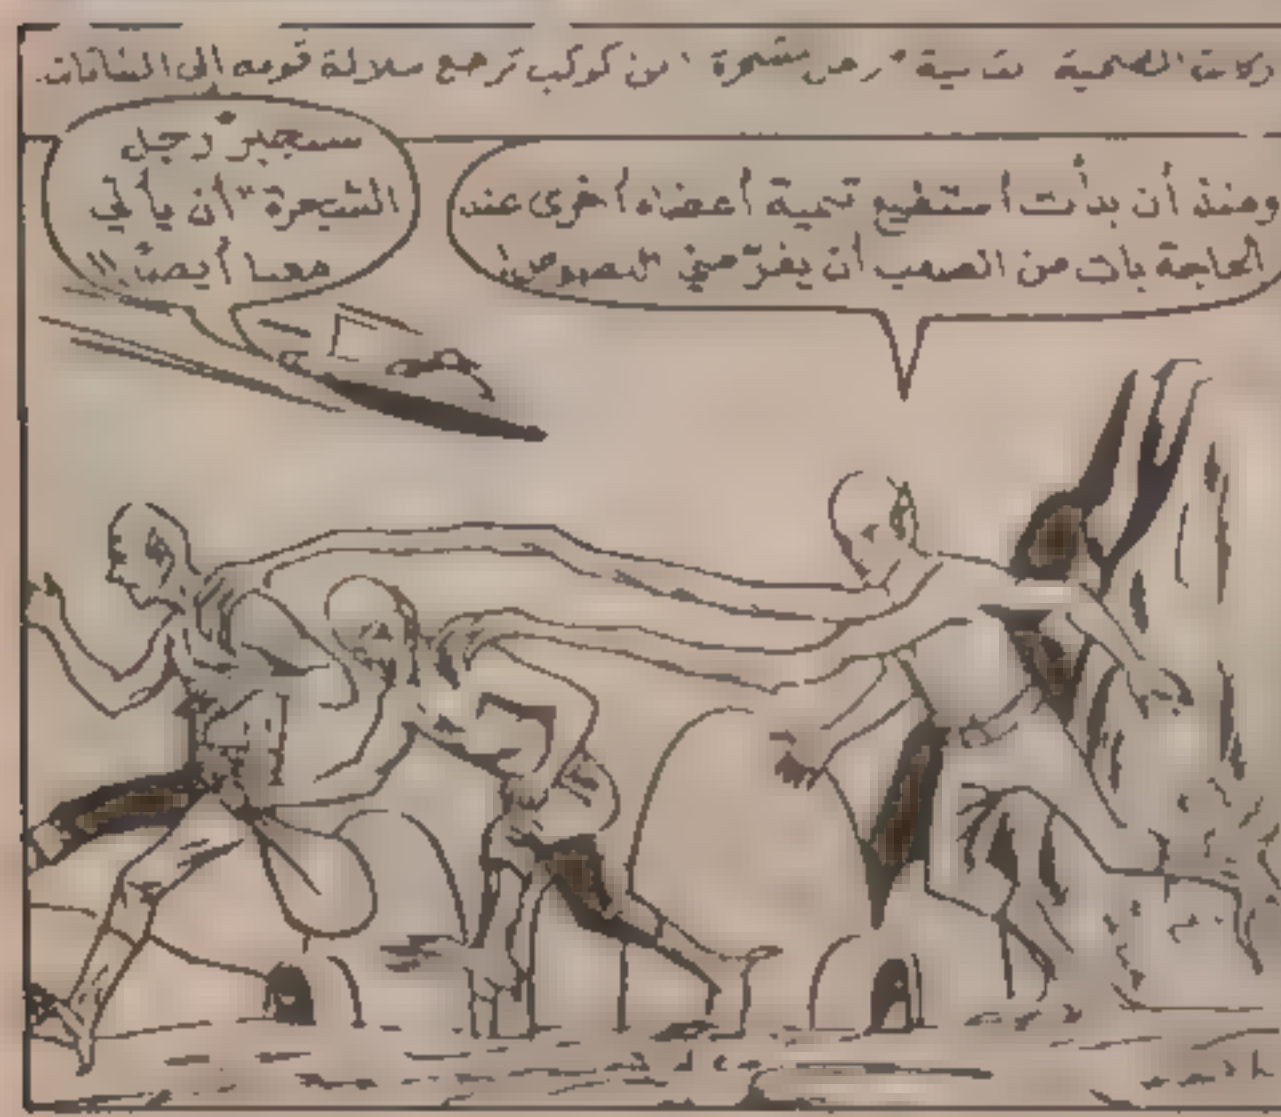 الصحية من كوكب ترجع سلالة قومه إلى النباتات.
ومنذ أن بدأت أستطيع تنمية أعضاء أخرى عند
الحاجة بات من الصعب أن يفرّ مني اللصوص!
رجل
الشجرة" أن يأتي
معنا أيضًا!!